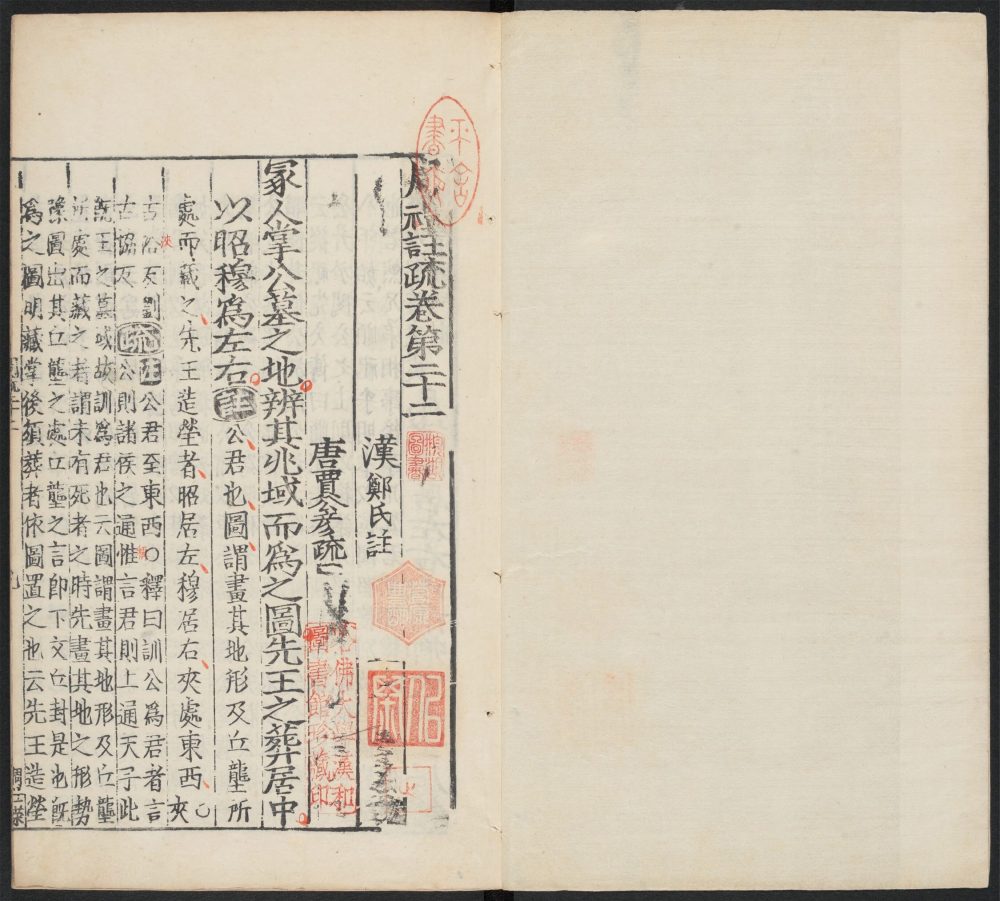 周禮註疏卷第二十二
漢鄭氏註
唐賈公彥疏
冢人掌公墓之地辨其兆域而爲之圖先王之葬居中
以昭穆爲左右註公君也圖謂畫其地形及丘壟所
處而藏之先王造塋者昭居左穆居右夾處東西○夾
古洽反劉
古協反疏註公君至東西○釋曰訓公爲君者言
公則諸侯之通惟言君則上通天子此
旣王之墓域故訓爲君也云圖謂畫其地形及丘壟
所處而藏之者謂未有死者之時先畫其地之形勢
豫圖出其丘壟之處丘壟之言卽下文丘封是也旣
爲之圖明藏掌後須葬者依圖置之也云先王造塋
哈佛大學漢和
圖書館珍藏印